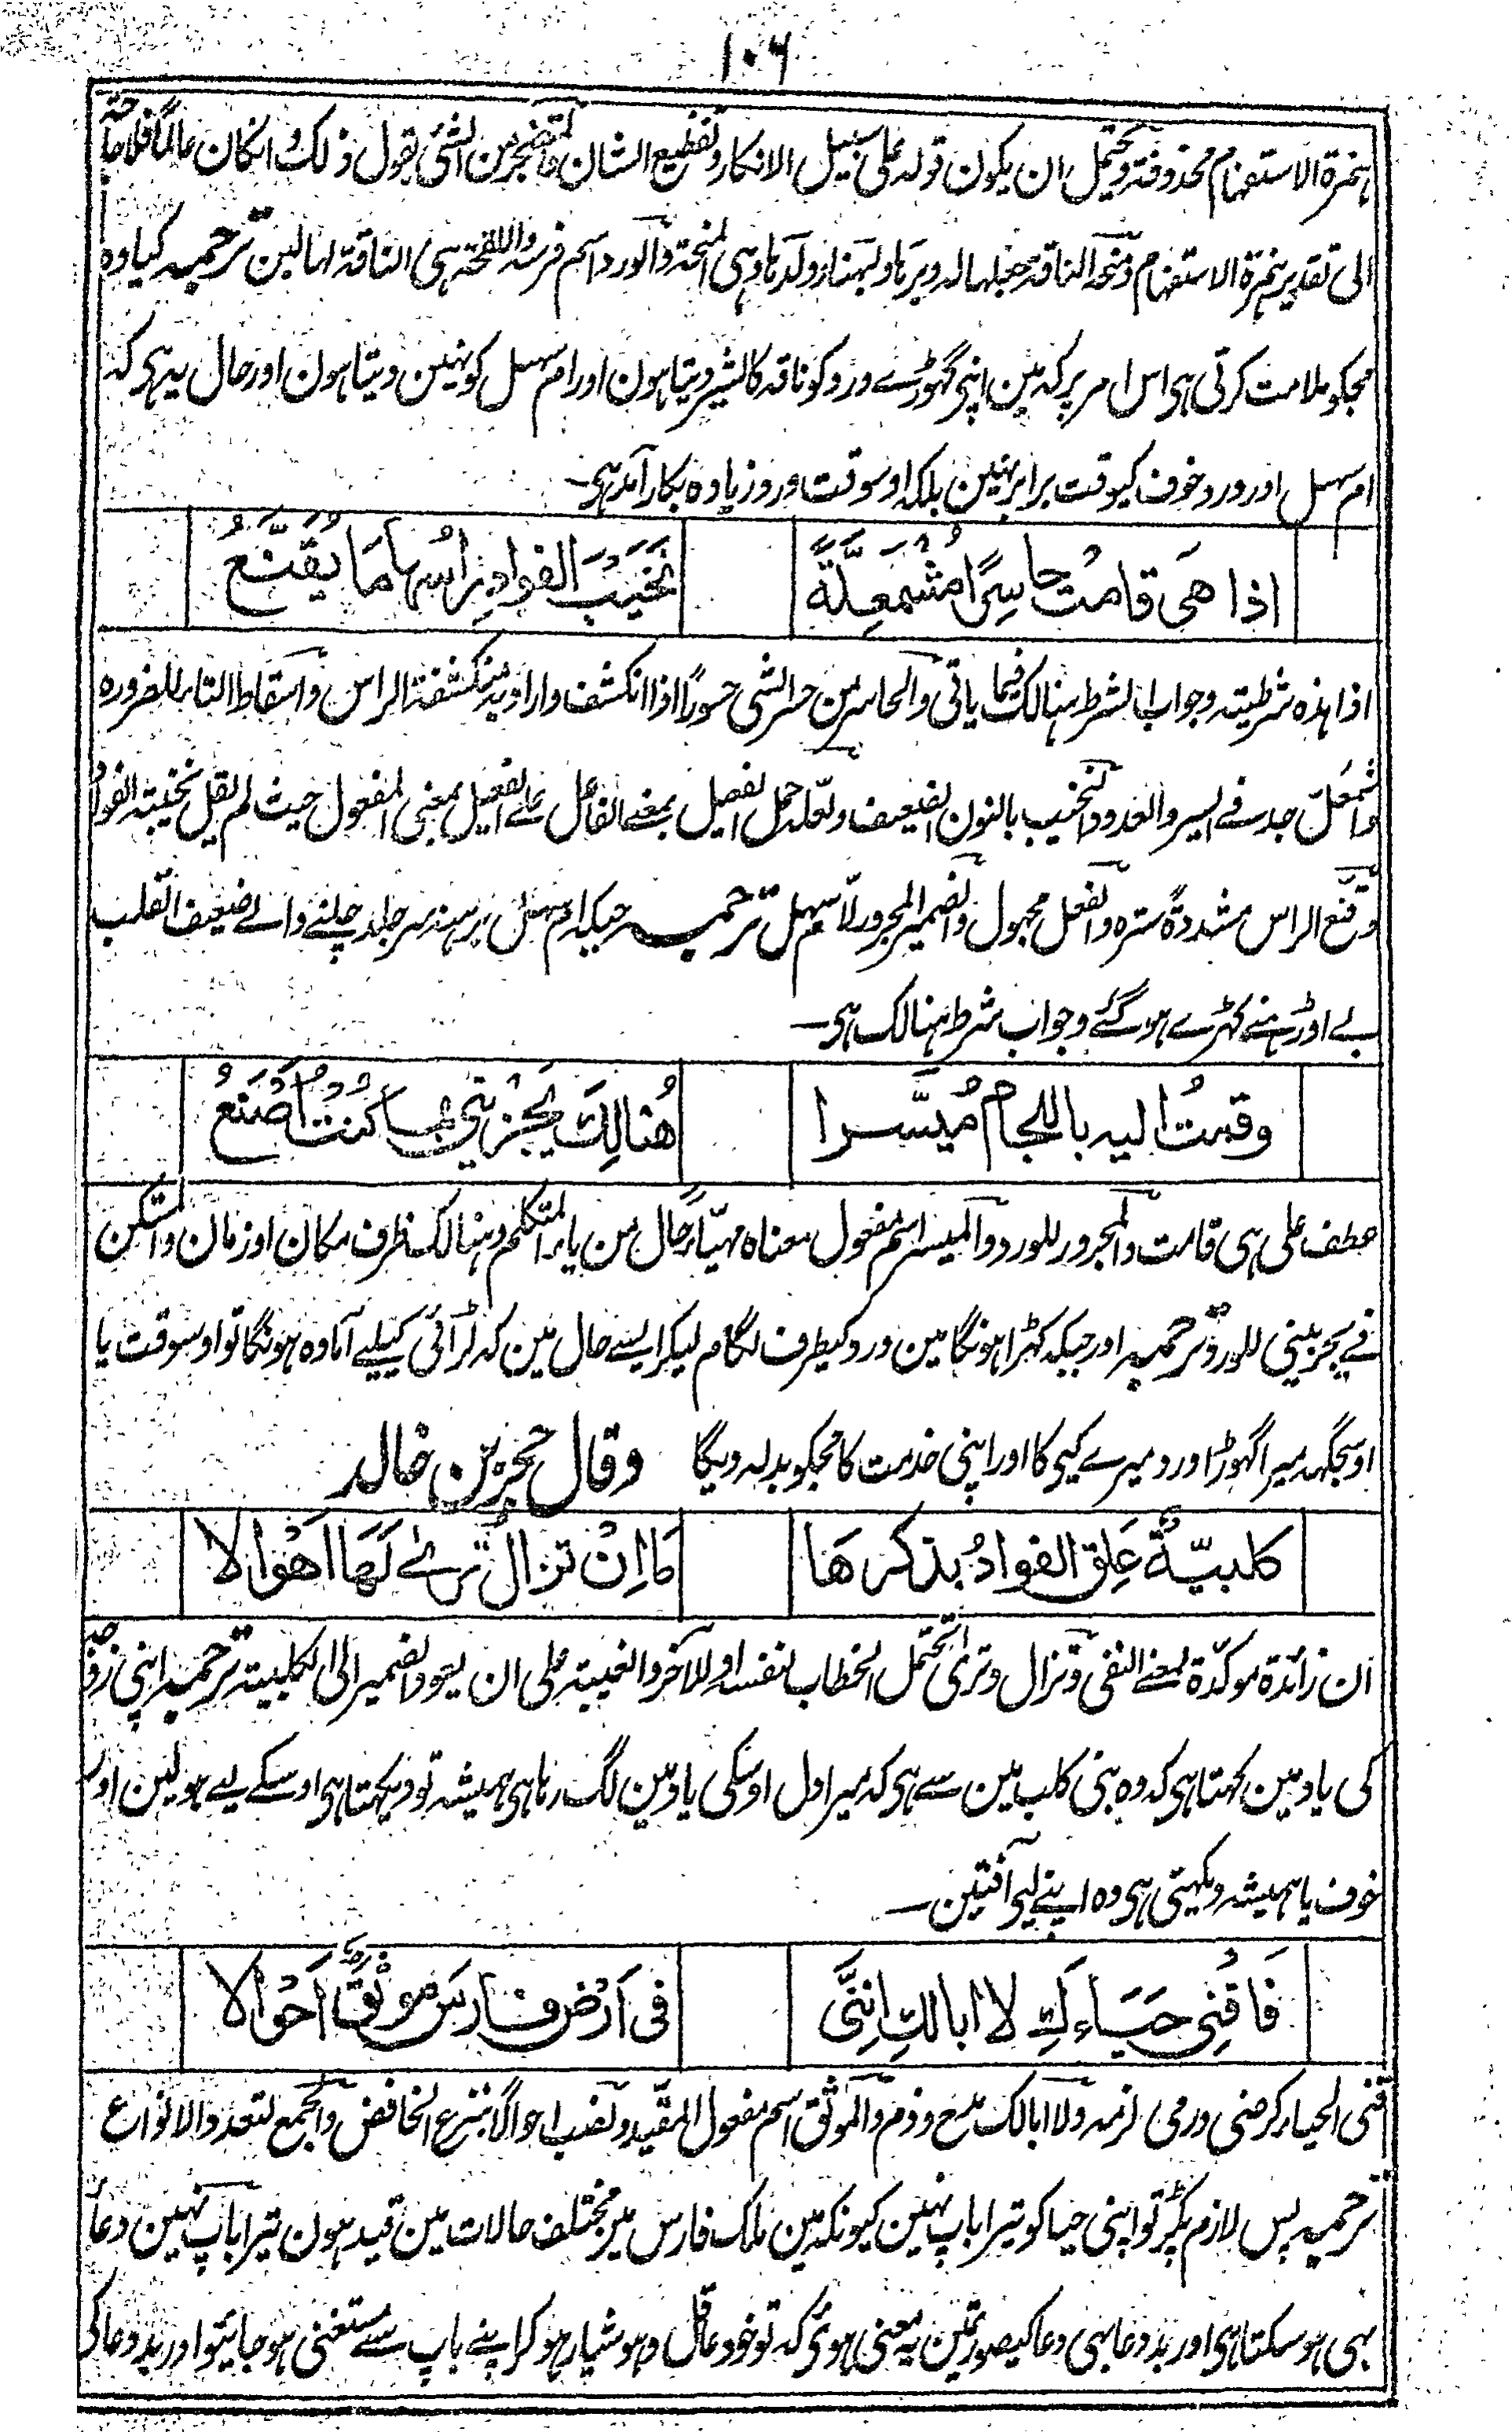 ۱۰۶
ہمزۃ الاستفہام محذوفۃ ویحتمل ان یکون قولہ علی سبیل الانکار وتفظیع الشان کما یتضجر من الشئی بقول ذلک وان کان عالمًا فلا حاجۃ
الی تقدیر ہمزۃ الاستفہام ومنحہ الناقۃ جعلہا لہ وبرہا ولبنہا وولدہا وہی المنحۃ والورد اسم فرسہ واللقحۃ ہی الناقۃ لہا لبن ترجمہ کیا وہ
مجکو ملامت کرتی ہی اس امر پر کہ مین اپنی گھوڑے ورد کو ناقہ کا شیر دیتا ہون اور ام سہل کو نہین دیتا ہون اور حال یہ ہی کہ
ام سہل اور ورد خوف کیوقت برابر نہین بلکہ اوسوقت ورد زیادہ بکار آمد ہی۔
اذا هَی قامت حاسِرًا مُشْمَعِلَّةً نَخِيبَ الفوادِ راسُها مَا يُقَنَّعُ
اذا ہذہ شرطیتہ وجواب الشرط ہنالک فیما یاتی والحاسر من حسر الشی حسورًا اذا انکشف واراد بہ منکشفۃ الراس واسقاط التاء للضرورہ
واشمعلّ جد فے السیر والعدو والنخیب بالنون الضعیف ولعلہ حمل الفعیل بمعنے الفاعل علے الفعیل بمعنی المفعول حیث لم یقل نخیبۃ الفواد
وقنع الراس مشددۃً سترہ والفعل مجہول والضمیر المجرور لام سہل ترجمہ جبکہ ام سہل برہنہ سر جلد چلنے والے ضعیف القلب
بے اوڑہنے کھڑے ہو گئے وجواب شرط ہنالک ہی۔
وقمتُ الیہ باللجام مُیَسَّرا هُنالِكَ يَجْزِينِي بما كنتُ اَصْنَعُ
عطف علی ہی قامت والمجرور للورد والمیسر اسم مفعول معناہ مہیّأ حال من یاء المتکلم وہنالک ظرف مکان او زمان والمستکن
فے یجزینی للورد ترجمہ اور جبکہ کھڑا ہونگا مین ورد کیطرف لگام لیکر ایسے حال مین کہ لڑائی کیلیے آمادہ ہونگا تو اوسوقت یا
اوسجگہہ میرا گھوڑا ورد میرے کیی کا اور اپنی خدمت کا مجکو بدلہ دیگا وقال حجر بن خالد
کلبیّةٌ عَلِق الفوادُ بذکرها مَا اِنْ تزال تَرےٰ لَهَا اَهْوالا
ان زائدۃ موکدّۃ لمعنے النفی وتزال وتری تحتمل الخطاب لنفسہ او للآخر والغیبتہ علی ان یعود الضمیر الی الکلبیتہ ترجمہ اپنی زوجہ
کی یاد مین کہتا ہی کہ وہ بنی کلب مین سے ہی کہ میرا دل اوسکی یاد مین لگ رہا ہی ہمیشہ تو دیکہتا ہی اوسکے لیے ہولین اور
خوف یا ہمیشہ دیکھتی ہی وہ اپنے لیی آفتین۔
فَاقْنِی حَیَاءَكِ لا ابالكِ اِنَّنِی فی اَرْضِ فارسَ موثَقٌ اَحْوالا
قنی الحیاء کرضی ورمی لزمہ ولا ابالک مدح وذم والموثق اسم مفعول المقید ونصب احوالًا بنزع الخافض والجمع لتعدد الانواع
ترجمہ پس لازم پکڑ تو اپنی حیا کو تیرا باپ نہین کیونکہ مین ملک فارس مین مختلف حالات مین قید ہون تیرا باپ نہین دعا
بہی ہو سکتا ہی اور بد دعا بہی دعا کیصورتمین یہ معنی ہوئی کہ تو خود عاقل وہوشیار ہو کر اپنے باپ سے مستغنی ہو جائیو اور بد دعا کی